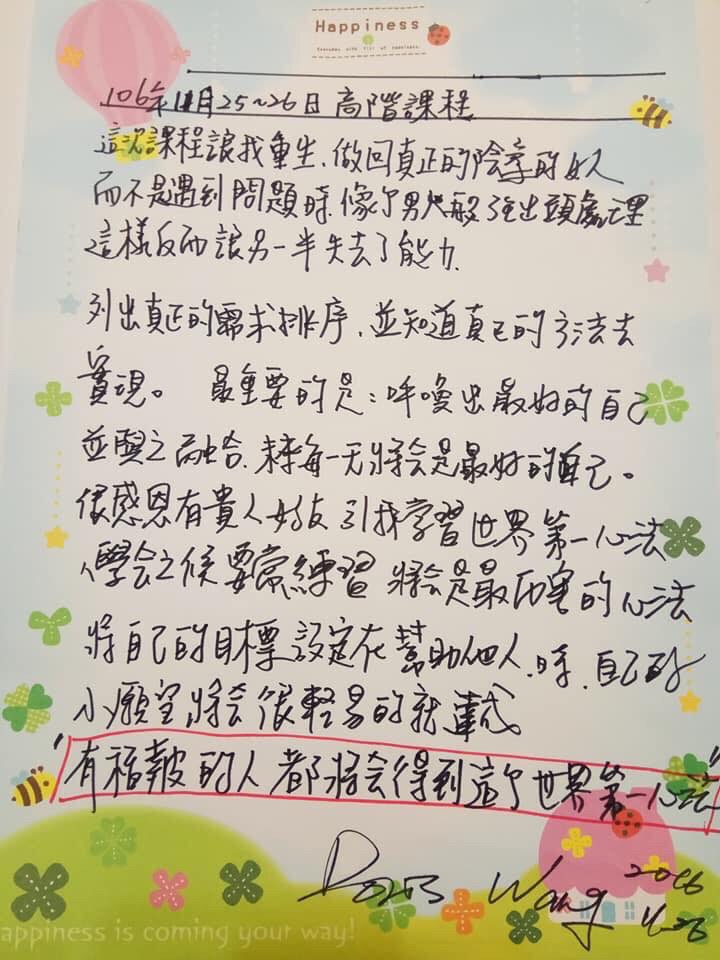 Happiness
106年11月25~26日 高階課程
這次課程讓我重生,做回真正的陰享的女人
而不是遇到問題時,像個男人般強出頭處理
這樣反而讓另一半失去了能力.
列出真正的需求排序,並知道真正的方法去
實現。 最重要的是:呼喚出最好的自己
並與之融合,未來每一天將會是最好的自己。
很感恩有貴人好友引我學習世界第一心法
學會之後要常練習 將會是最厲害的心法
將自己的目標設定在幫助他人時,自己的
小願望將會很輕易的就達成
"有福報的人都將會得到這個世界第一心法"
Doris Wang
appiness is coming your way!